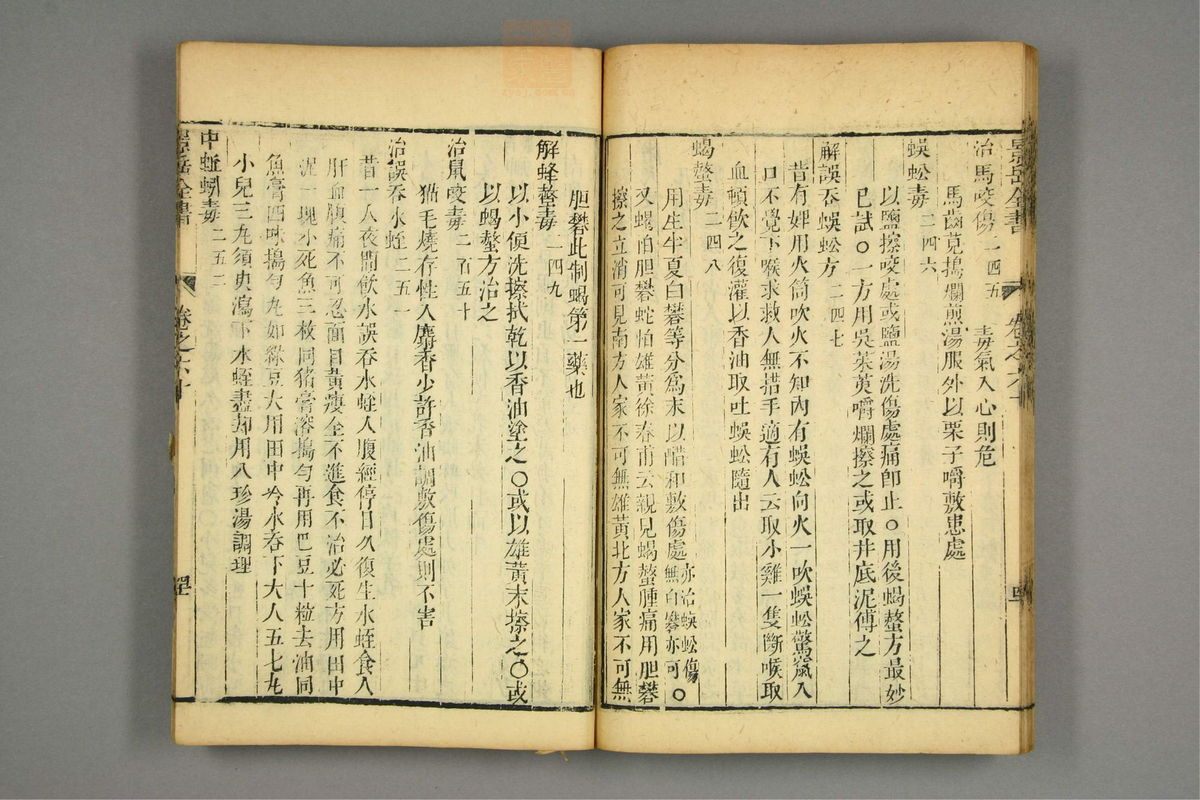 景岳全書
卷之六十
治馬咬傷二四五 毒氣入心則危
馬齒莧搗爛煎湯服外以栗子嚼敷患處
蜈蚣毒二四六
以鹽擦咬處或鹽湯洗傷處痛卽止○用後蝎螫方最妙
已試○一方用吳茱萸嚼爛擦之或取井底泥傅之
解誤吞蜈蚣方二四七
昔有婢用火筒吹火不知內有蜈蚣向火一吹蜈蚣驚竄入
口不覺下喉求救人無措手適有人云取小雞一隻斷喉取
血頓飲之復灌以香油取吐蜈蚣隨出
蝎螫毒二四八
用生半夏白礬等分爲末以醋和敷傷處亦治蜈蚣傷無白礬亦可○
又蝎怕胆礬蛇怕雄黃徐春甫云親見蝎螫腫痛用胆礬
擦之立消可見南方人家不可無雄黃北方人家不可無
胆礬此制蝎第一藥也
解蜂螫毒二四九
以小便洗擦拭乾以香油塗之○或以雄黃末擦之○或
以蝎螫方治之
治鼠咬毒二百五十
猫毛燒存性入麝香少許香油調敷傷處則不害
治誤吞水蛭二五一
昔一人夜間飲水誤吞水蛭入腹經停日久復生水蛭食人
肝血腹痛不可忍面目黃瘦全不進食不治必死方用田中
泥一塊小死魚三枚同猪膏溶搗勻再用巴豆十粒去油同
魚膏四味搗勻丸如綠豆大用田中冷水吞下大人五七丸
小兒三丸須臾瀉下水蛭盡却用八珍湯調理
中蚯蚓毒二五二
景岳全書
卷之六十